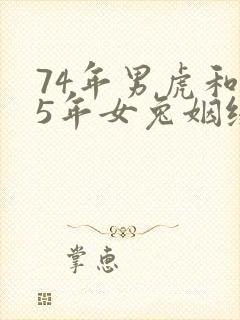 74年男虎和
5年女兔姻
掌惠